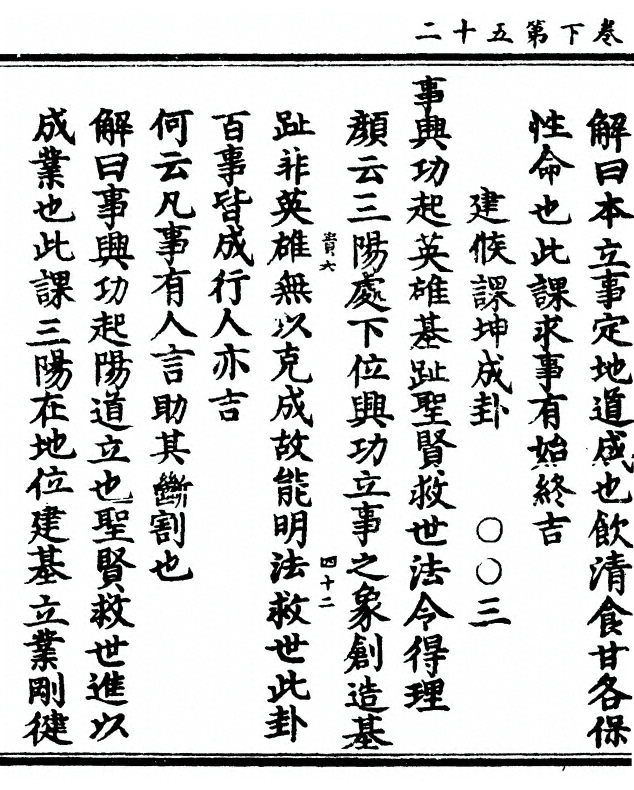 卷下第五十二
解曰本立事定地道成也飲清食甘各保
性命也此課求事有始終吉
建候課坤成卦 〇〇三
事興功起英雄基趾聖賢救世法令得理
顏云三陽處下位興功立事之象創造基
貴六
四十二
趾非英雄無以克成故能明法救世此卦
百事皆成行人亦吉
何云凡事有人言助其斷割也
解曰事興功起陽道立也聖賢救世進以
成業也此課三陽在地位建基立業剛健